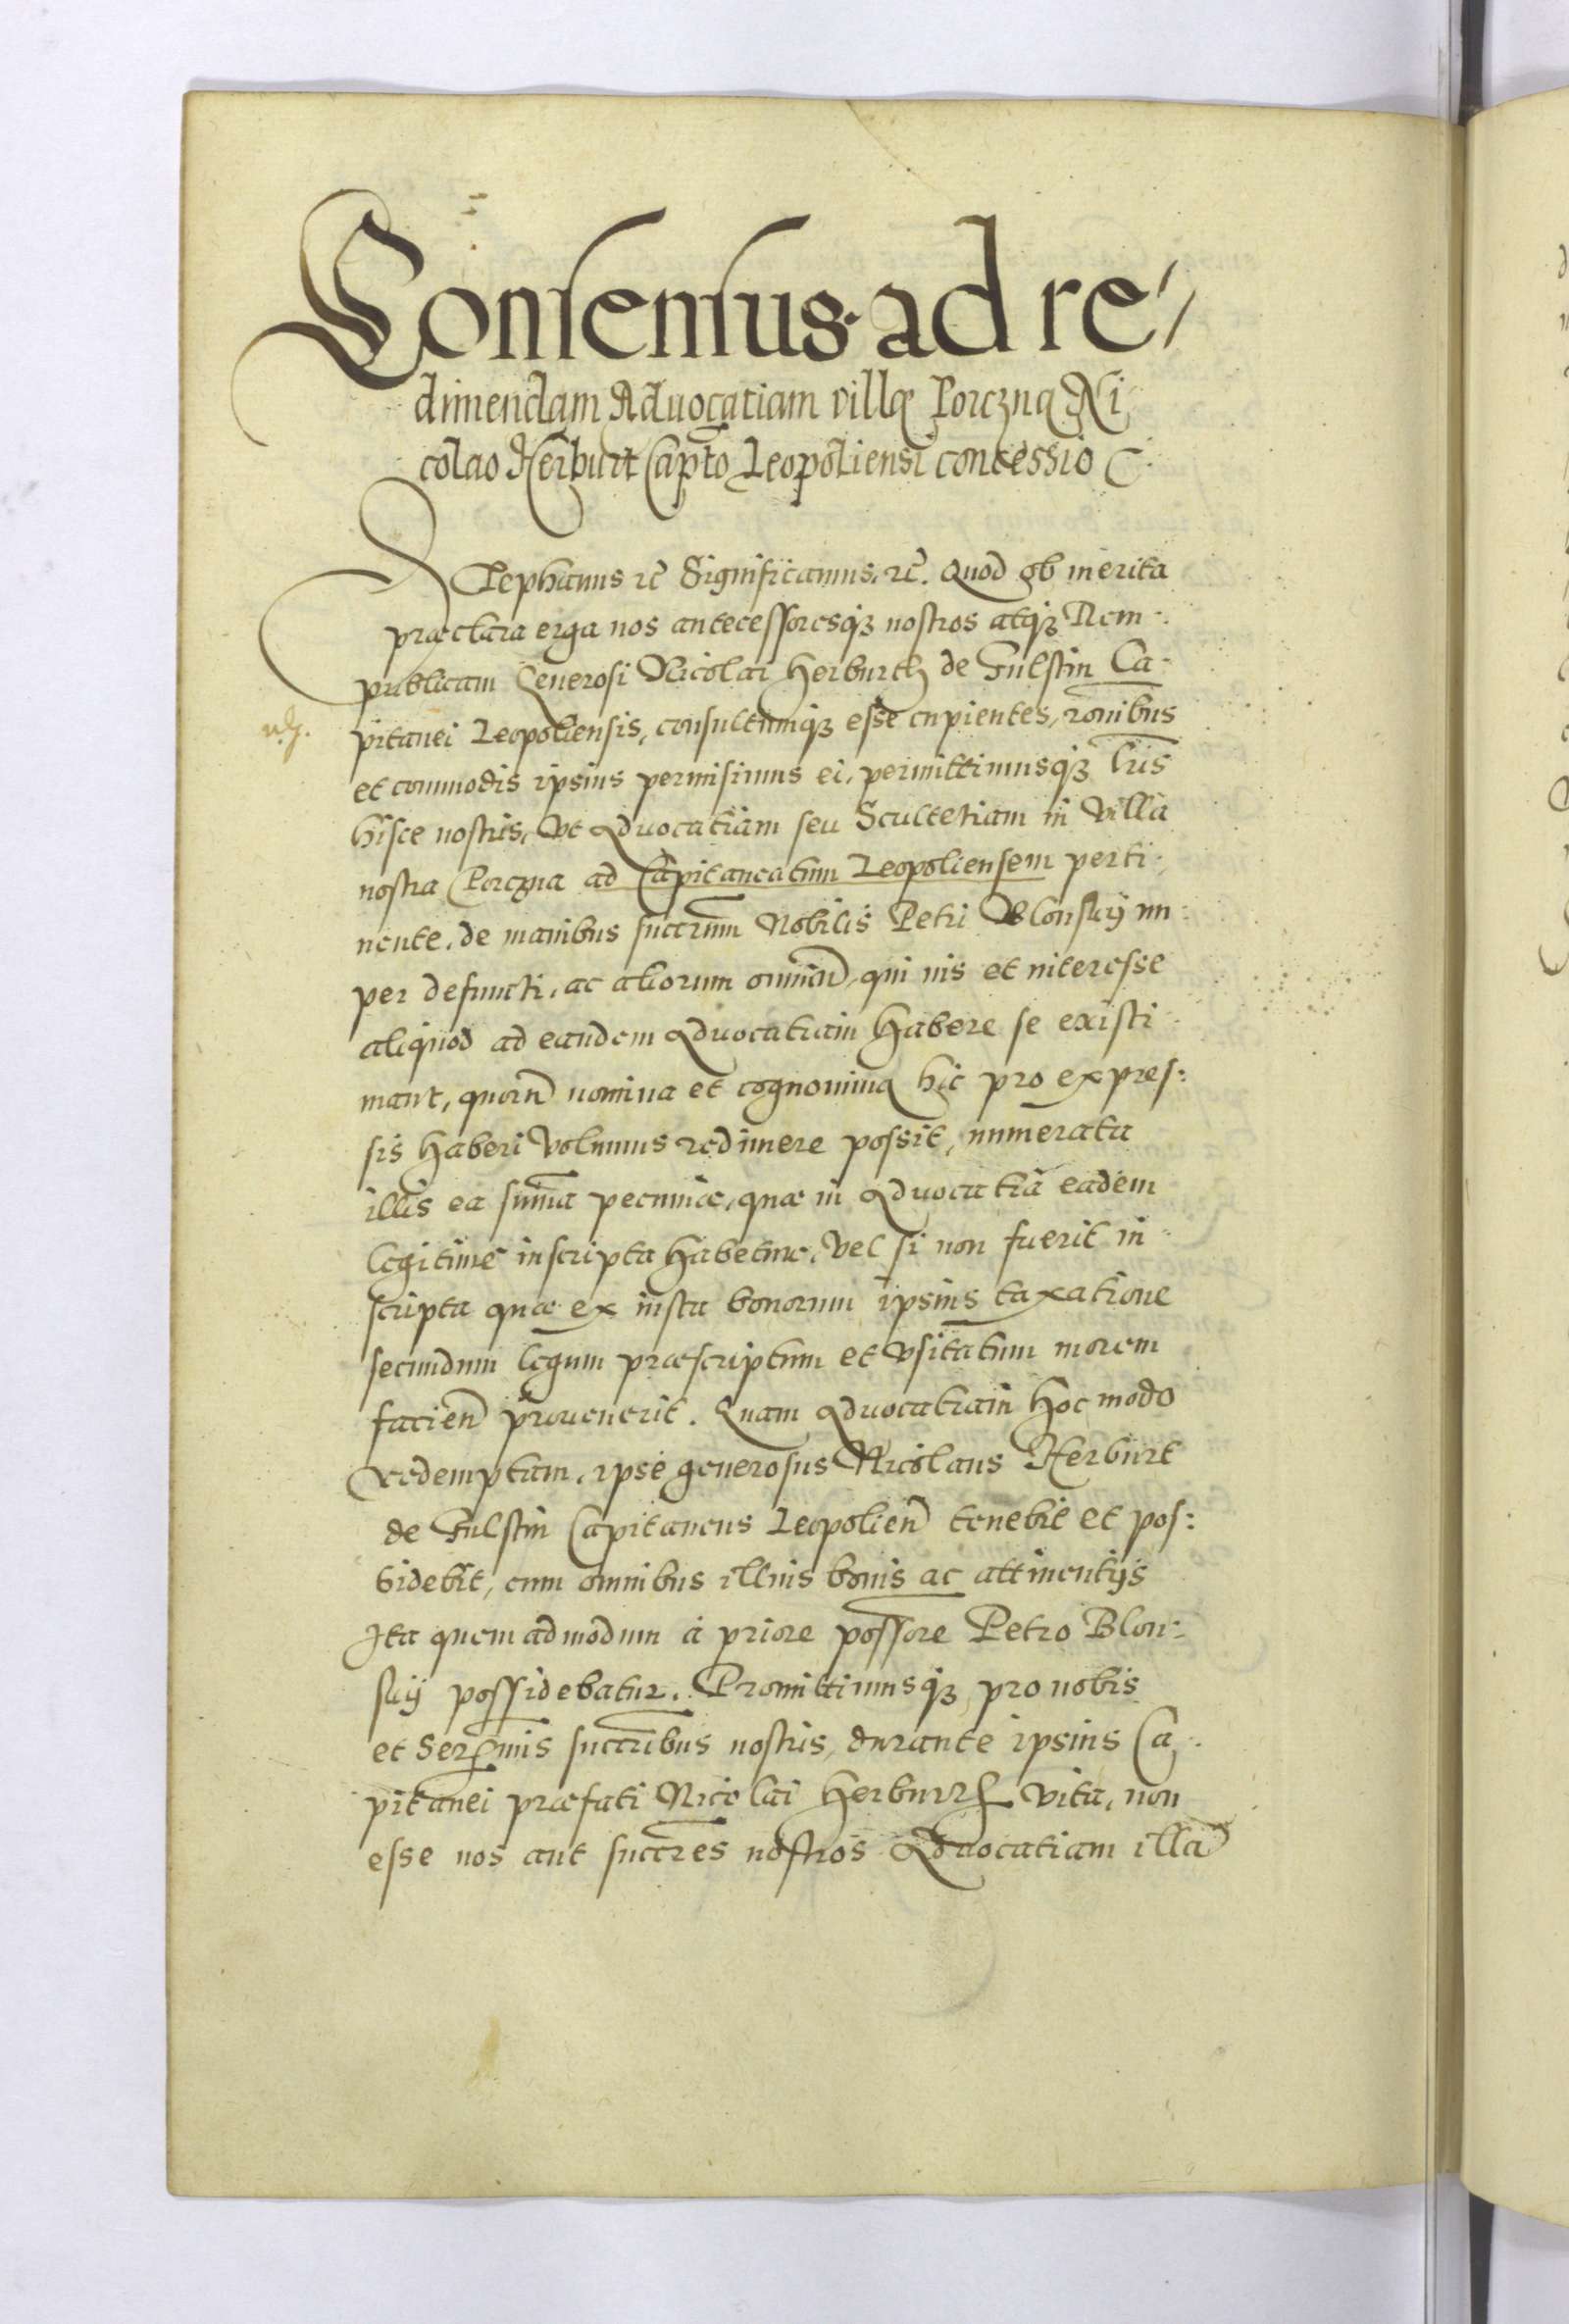 Consensus ad re
dimendam Aduocatiam villę Porczna Ni
colao Herburt Capto Leopoliensi concessio
Stephanus rc̃ Significamus rc̃. Quod ob merita
præclara erga nos antecessoresq; nostros atq; Rem
publicam Generosi Nicolai Herburth de Fulstin Ca-
pitanei Leopoliensis, consultumq; esse cupientes, ronibus
et commodis ipsius permisimus ei, permittimusq; Lris
hisce nostris, Vt Aduocatiam seu Scultetiam in Villa
nostra Porczna ad Capitaneatum Leopoliensem perti-
nente, de manibus succrum Nobilis Petri Blonsky nu-
per defuncti, ac aliorum omniũ, qui ius et interesse
aliquod ad eandem Aduocatiam habere se existi-
mant, quorũ nomina et cognomina hic pro expres-
sis haberi Volumus redimere possit, numerata
illis ea summa pecuniæ, quæ in Aduocatia eadem
legitime inscripta habetur, Vel si non fuerit in-
scripta quæ ex iusta bonorum ipsius taxatione
secundum legum præscriptum et vsitatum morem
facien̄ prouenerit. Quam Aduocatiam hoc modo
redemptam, ipse generosus Nicolaus Herburt
de Fulstin Capitaneus Leopolien̄ tenebit et pos-
sidebit, cum omnibus illius bonis ac attinentijs
Ita quemadmodum a priore possore Petro Blon-
sky possidebatur. Promittimusq; pro nobis
et Sermis succribus nostris, durante ipsius Ca-
pitanei præfati Nicolai Herburth vita, non
esse nos aut succres nostros Aduocatiam illã